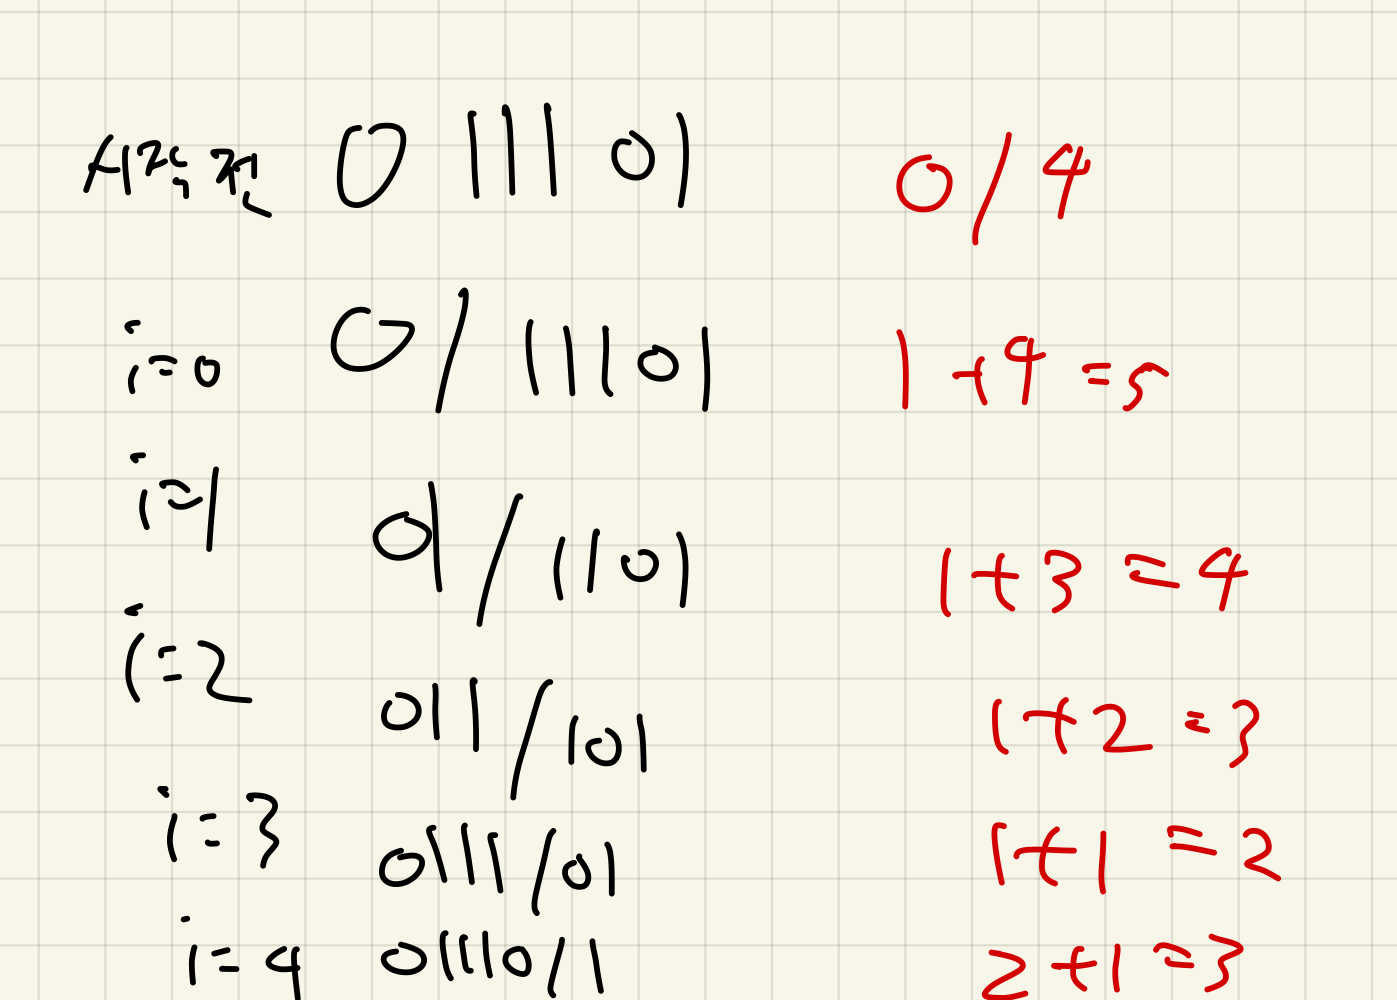 0 111 01 0/4
i=0 0/11101 1+4=5
i=1 01/1101 1+3=4
i=2 011/101 1+2=3
i=3 0111/01 1+1=2
i=4 01110/1 2+1=3